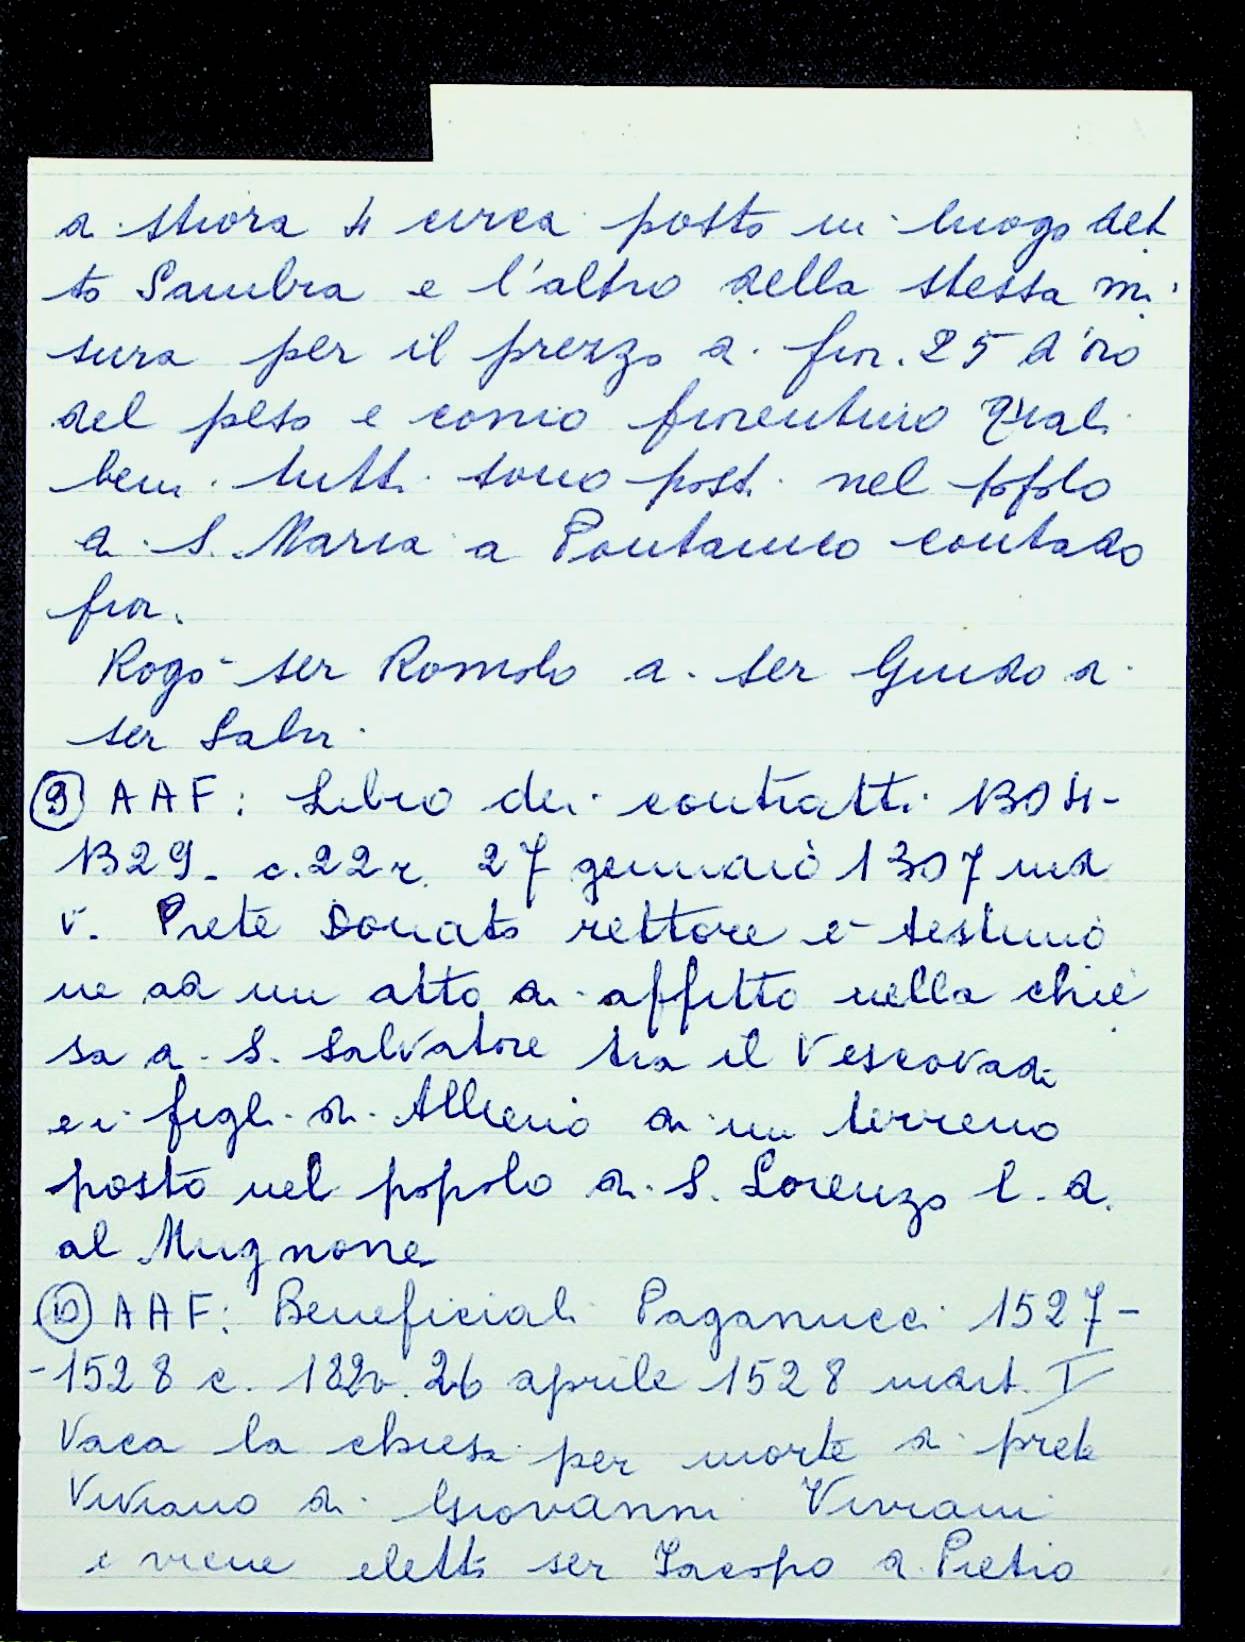 di stiora 4 circa posto in luogo det
to Sambra e l'altro della stessa mi
sura per il prezzo di fior. 25 d'oro
del peso e conio fiorentino quali
beni tutti sono posti nel popolo
di S. Maria a Pontanico contado
fior.
Rogò ser Romolo di ser Guido di
ser Salvi
(9) AAF: Libro dei contratti 1304-
1329. c. 22r. 27 gennaio 1307 ind.
V. Prete Donato rettore è testimo
ne ad un atto di affitto nella chie
sa di S. Salvatore tra il Vescovado
e i figli di Albenio di un terreno
posto nel popolo di S. Lorenzo l. d.
al Mugnone
(10) AAF: Beneficiali Paganucci 1527-
-1528 c. 182v. 26 aprile 1528 indit. I
Vaca la chiesa per morte di prete
Viviano di Giovanni Viviani
e viene eletto ser Jacopo di Pietro